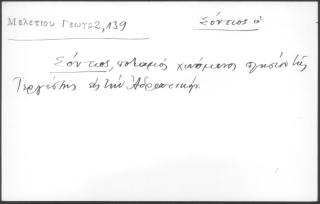 Μελετίου Γεωγρ 2,139
Σόντιος ὁ
Σόντιος, ποταμὸς χυνόμενος πλησίον τῆς
Τεργέστης εἰς τὴν Ἀδριατικήν.